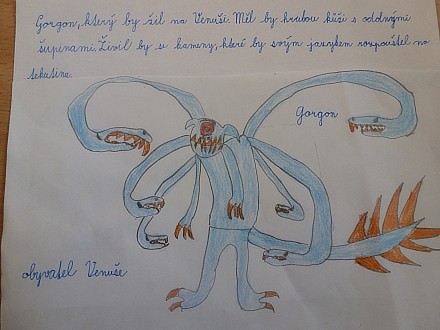 Gorgon, který by žil na Venuši. Měl by hrubou kůži s odolnými
šupinami. Živil by se kameny, které by svým jazykem rozpouštěl na
tekutinu.
Gorgon
obyvatel Venuše